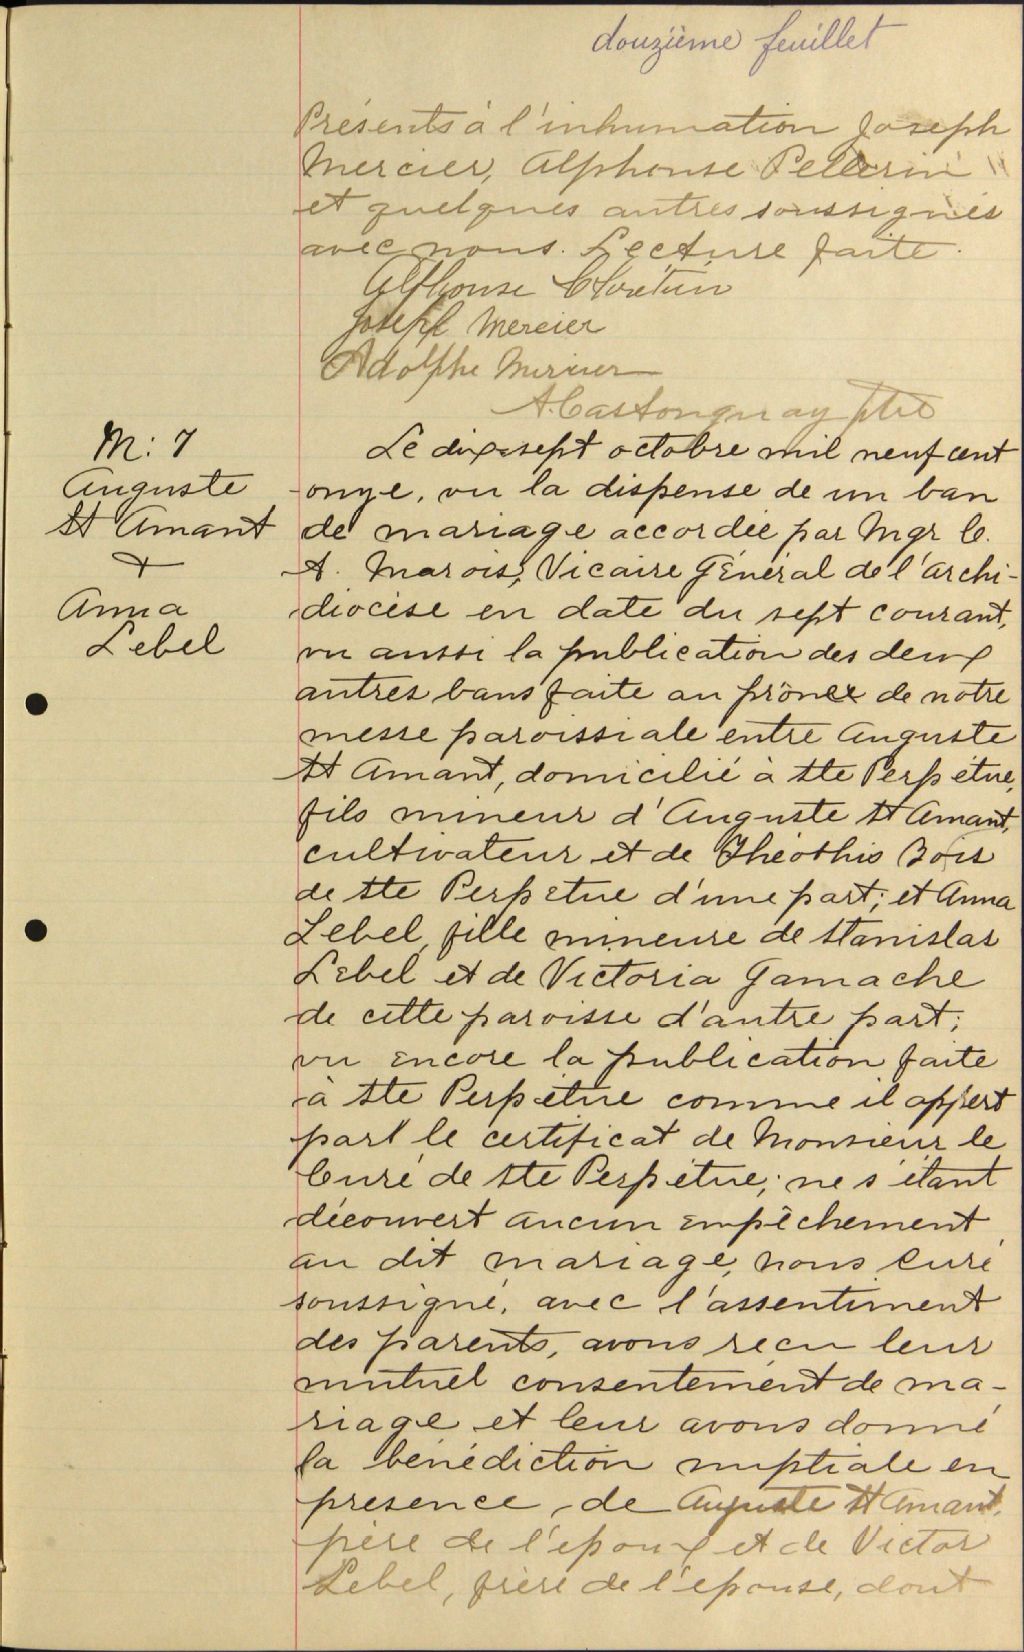 douzième feuillet
Présents à l'inhumation Joseph
Mercier, Alphonse Pellerin
et quelques autres soussignés
avec nous. Lecture faite.
Alphonse
Joseph Mercier
Adolphe Mercier
A. Castonguay ptre
M: 7
Auguste
St Amant
+
Anna
Lebel
Le dix-sept octobre mil neuf cent
onze, vu la dispense de un ban
de mariage accordée par Mgr C.
A. Marois, Vicaire Général de l'archi-
diocèse en date du sept courant,
vu aussi la publication des deux
autres bans faite au prône de notre
messe paroissiale entre Auguste
St Amant, domicilié à Ste Perpétue,
fils mineur d'Auguste St Amant,
cultivateur et de Théothis Bois
de Ste Perpetue d'une part; et Anna
Lebel, fille mineure de Stanislas
Lebel et de Victoria Gamache
de cette paroisse d'autre part;
vu encore la publication faite
à Ste Perpétue comme il appert
par le certificat de Monsieur le
Curé de Ste Perpétue; ne s'étant
découvert aucun empêchement
au dit mariage, nous Curé
soussigné, avec l'assentiment
des parents, avons reçu leur
mutuel consentement de ma-
riage et leur avons donné
la bénédiction nuptiale en
presence de Auguste St Amant,
père de l'epoux et de Victor
Lebel, frère de l'epouse, dont